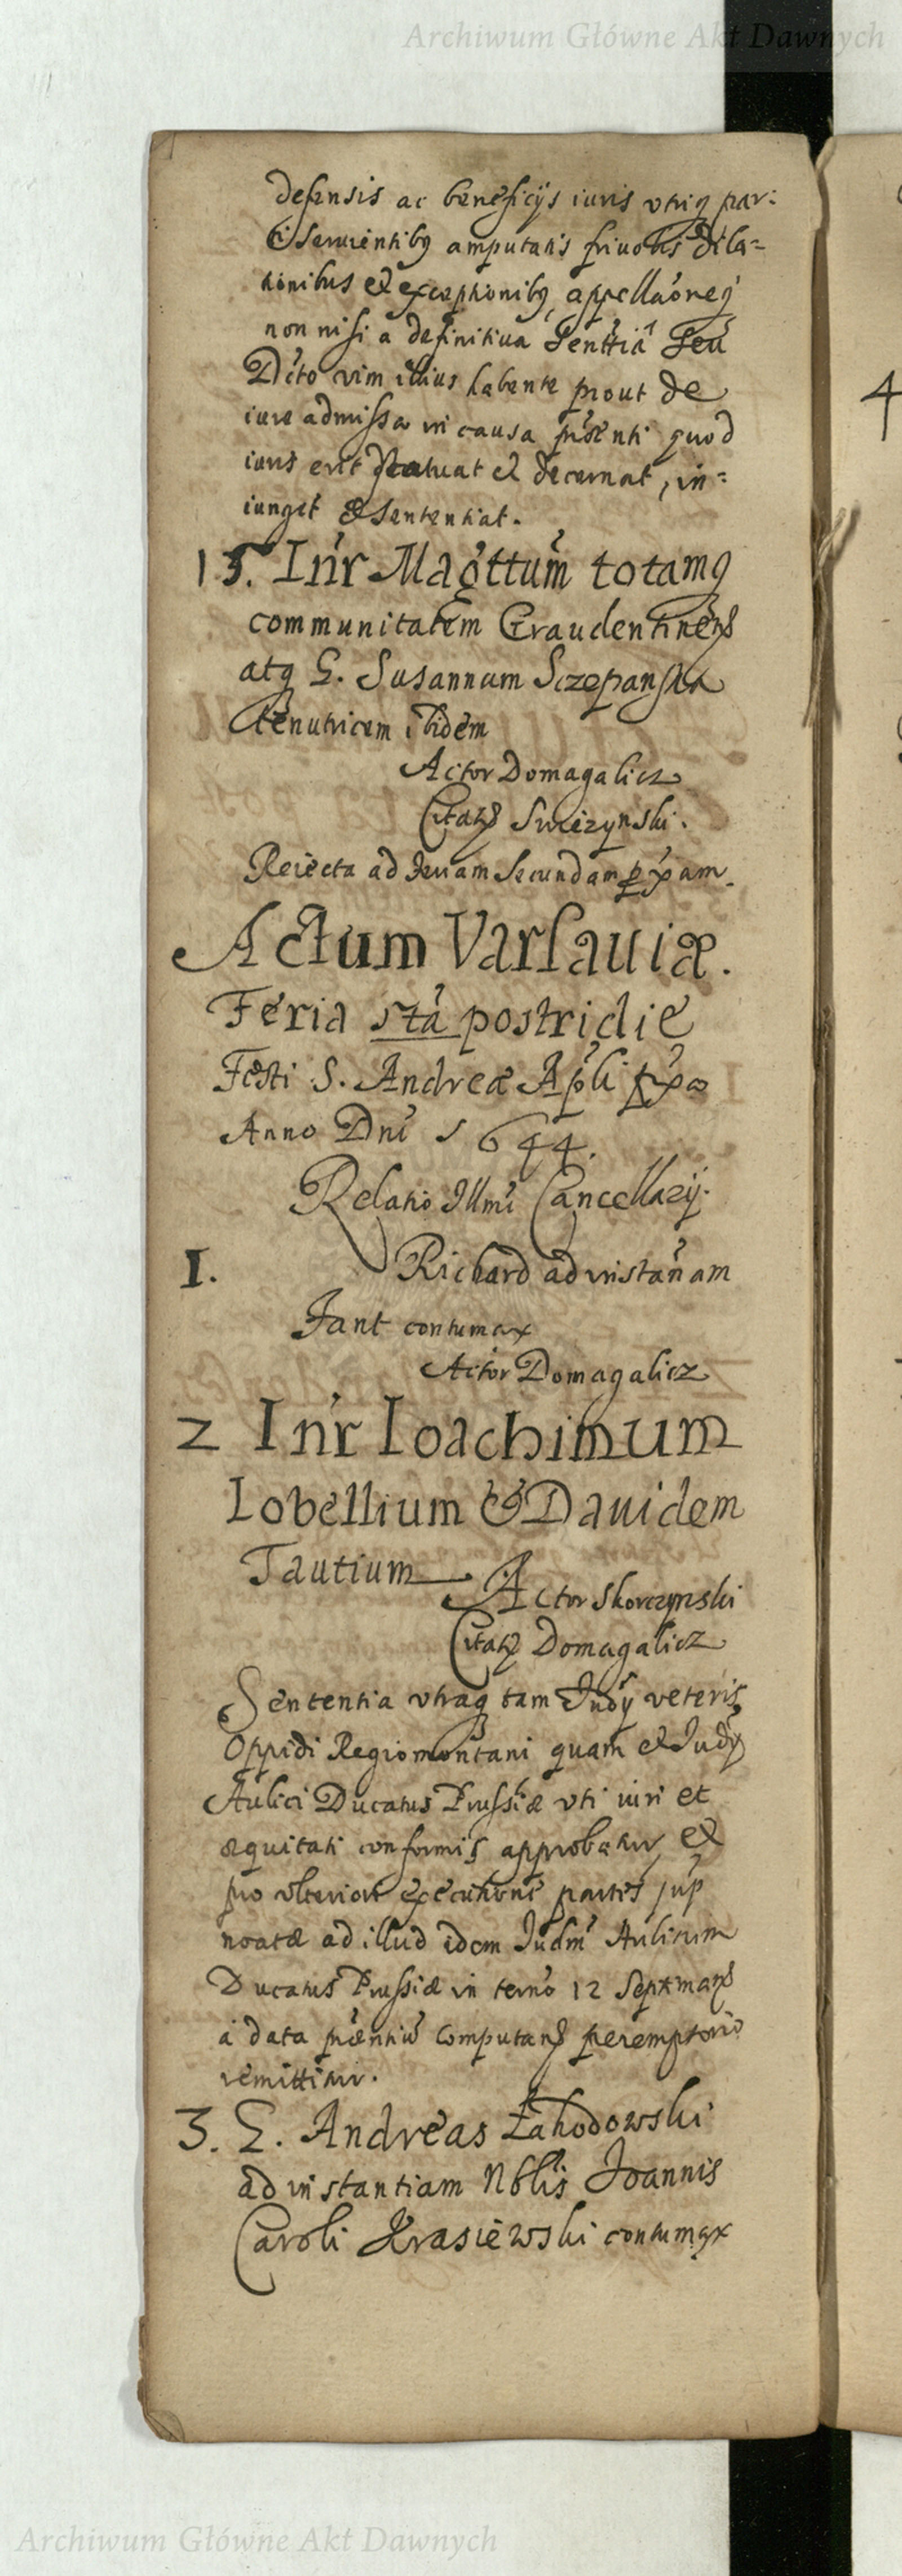 Archiwum Główne Akt Dawnych
defensis ac beneficijs iuris vtriq par:
ti seruientibq amputatis friuolis dila=
tionibus et exceptionibq, appellaõneq
non nisi a definitiua Senttia seu
Dcto vim illius habente prout de
iure admissa in causa pñsenti quod
iuris erit statuat et decernat, in=
iunget et sententiat.
15. Inr Magttum totamq
communitatem Graudentinens
atq G. Susannam Sczepanska
tenutricem ibidem
Actor Domagalicz
Citats Swiezynski.
Reiecta ad Feriam secundam pxam.
Actum Varsauiæ.
Feria sta postridie
Festi S. Andreæ Apli pxa
Anno Dni 1644.
Relatio Illmi Cancellarij.
1.
Richard ad instanam
Fant contumax
Actor Domagalicz
2 Inr Ioachimum
Lobellium & Dauidem
Tautium Actor Skorczynski
Citats Domagalicz
Sententia vtraq tam Iudij veteris
Oppidi Regiomontani quam et Iudij
Aulici Ducatus Prussiæ vti iuri et
æquitati conformis approbatur, et
pro vlteriori executione partes sup
noatæ ad illud idem Iudm Aulicum
Ducatus Prussiæ in terno 12 Septman
a data pñentiu computans peremptorio
remittitur.
3. G. Andreas Zahodowski
ad instantiam Nblis Joannis
Caroli Krasiewski contumax
4
Archiwum Główne Akt Dawnych